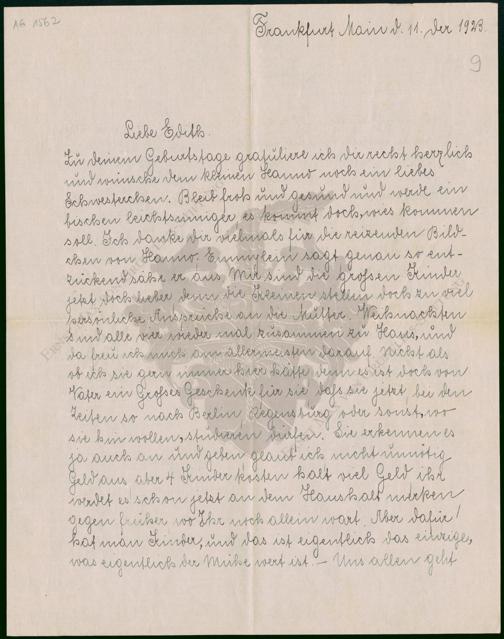 AG 1562
Frankfurt Main d. 11. Dez 1928.
9
Liebe Edith.
Zu deinem Geburtstage gratuliere ich dir recht herzlich
und wünsche dem kleinen Hanno noch ein liebes
Schwesterchen. Bleib froh und gesund und werde ein
bischen leichtsinniger es kommt doch, wies kommen
soll. Ich danke dir vielmals für die reizenden Bild-
chen von Hanno. Emmylein sagt genau so ent-
zückend sähe er aus. Mir sind die grossen Kinder
jetzt doch lieber denn die Kleinen stellen doch zu viel
persönliche Ansprüche an die Mutter. Weihnachten
sind alle vier wieder mal zusammen zu Haus, und
da freu ich mich am allermeisten darauf. Nicht als
ob ich sie gern immer hier hätte denn es ist doch von
Vater ein Grosses Geschenk für sie dass sie jetzt bei den
Zeiten so nach Berlin Regensburg oder sonst, wo
sie hin wollen, studieren dürfen. Sie erkennen es
ja auch an und geben glaub ich nicht unnötig
Geld aus aber 4 Kinder kosten halt viel Geld ihr
werdet es schon jetzt an dem Haushalt merken
gegen früher wo Ihr noch allein wart. Aber dafür
hat man Kinder, und das ist eigentlich das einzige,
was eigentlich der Mühe wert ist. – Uns allen geht